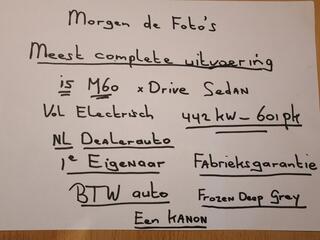 Morgen de Foto's
Meest complete uitvoering
i5 M60 xDrive Sedan
Vol Electrisch 442 kW - 601 pk
NL Dealerauto
1e Eigenaar Fabrieksgarantie
BTW auto Frozen Deep Grey
Een KANON